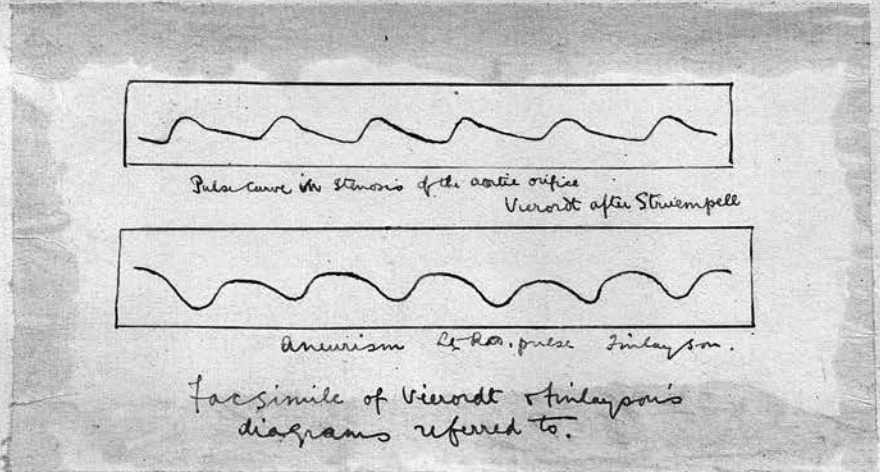 Pulse Curve in Stenosis of the aortic orifice
Vierordt after Struempell
Aneurism Lt Rad. pulse Finlayson.
Facsimile of Vierordt & Finlayson's
diagrams referred to.